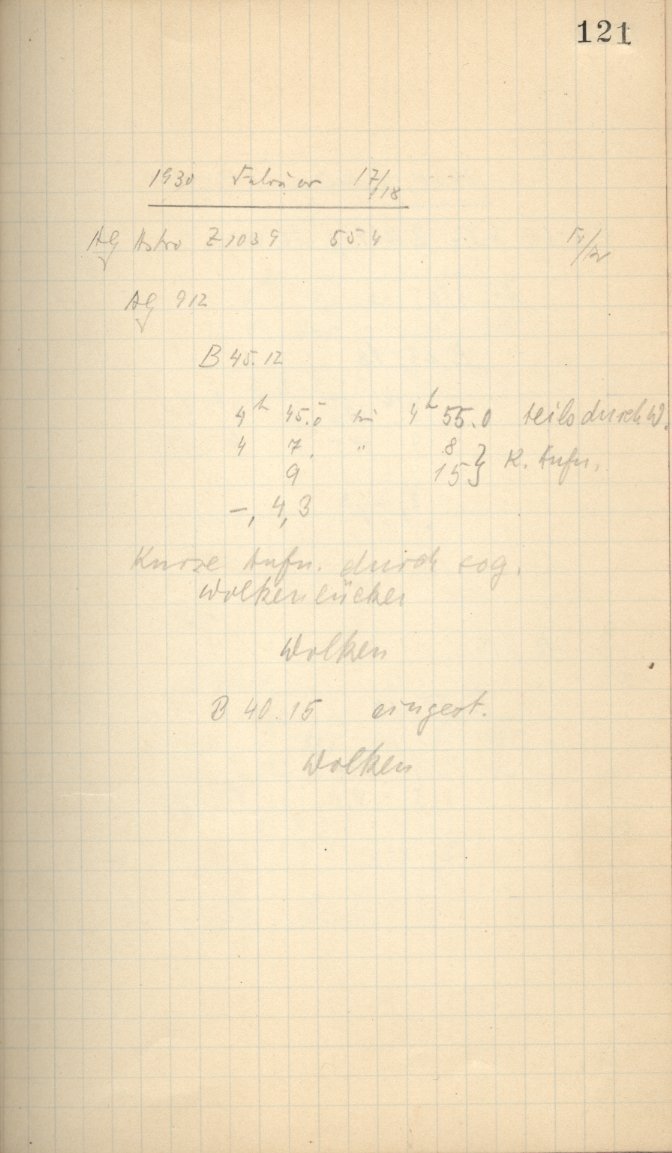 121
1930 Februar 17/18
AG Astro Z 1039 554
AG 912
B 45.12
4h 45.0 bis 4h 55.0 teils durch W.
4 7. " 8 } K. Aufn.
9 15
–, 4,3
Kurze Aufn. durch sog.
Wolkenlücken
Wolken
B 40.15 eingest.
Wolken